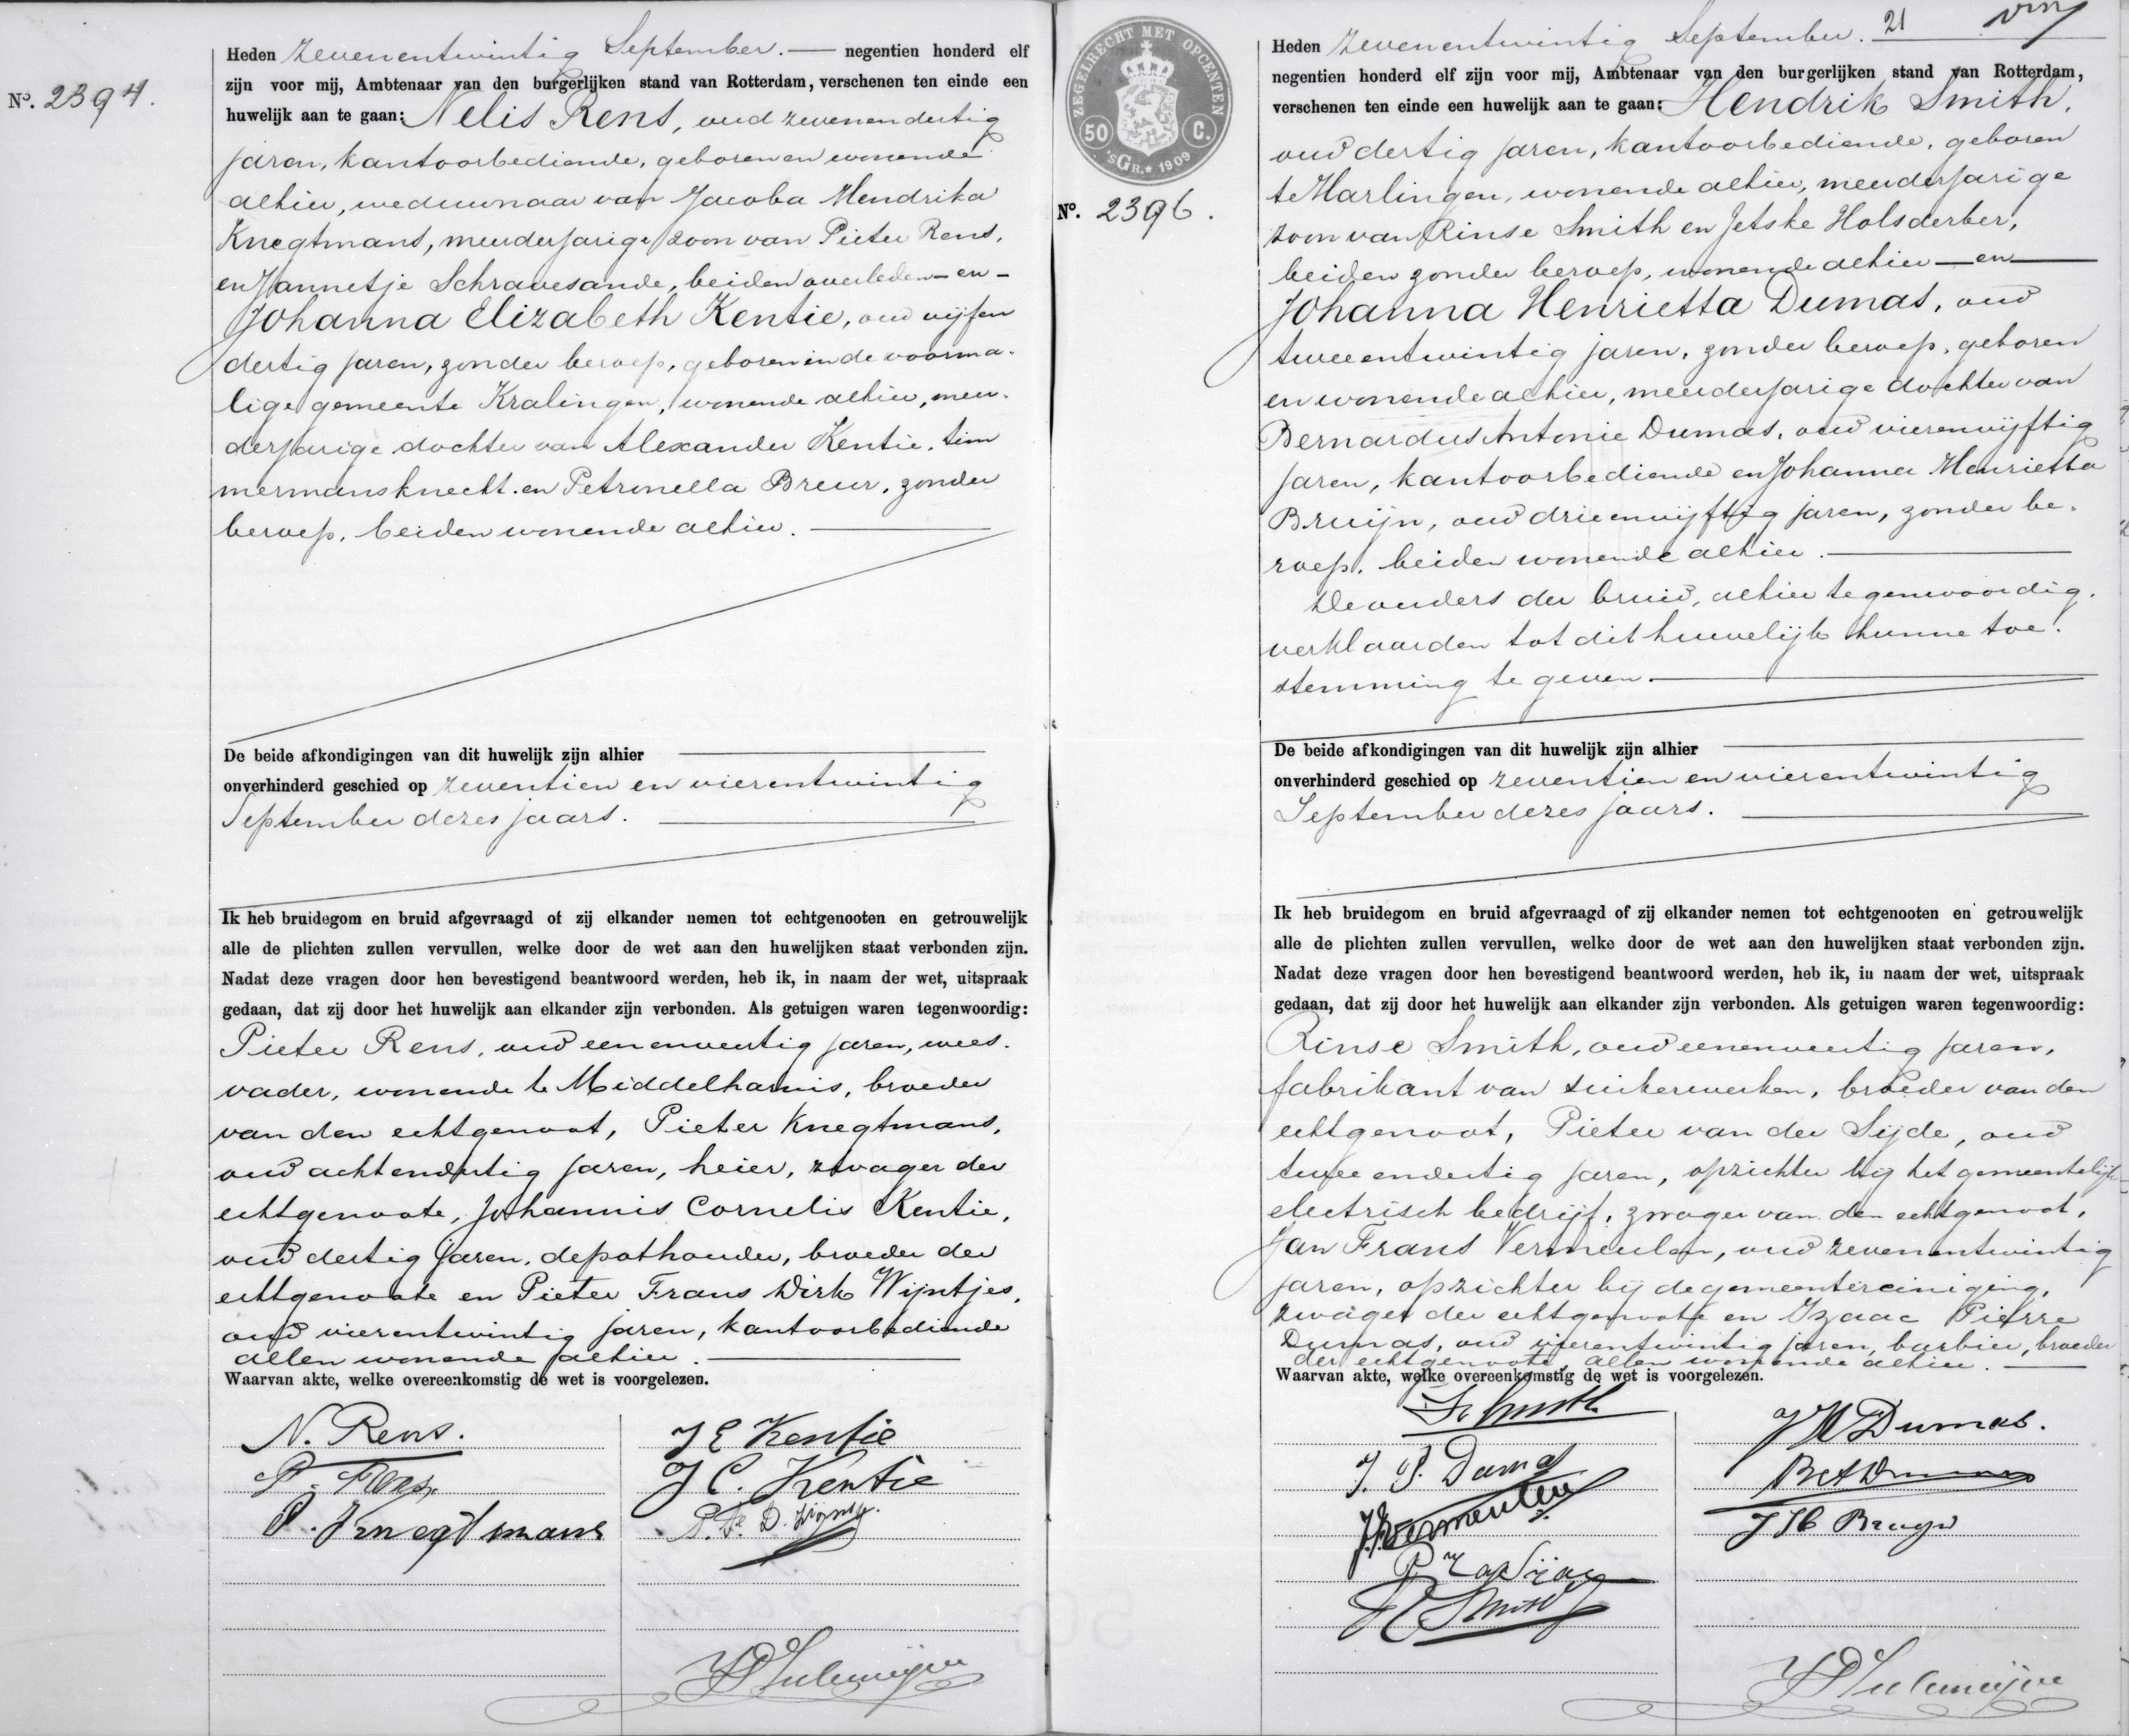 No. 2394.
Heden zevenentwintig September. — negentien honderd elf
zijn voor mij, Ambtenaar van den burgerlijken stand van Rotterdam, verschenen ten einde een
huwelijk aan te gaan: Nelis Rens, oud zevenendertig
jaren, kantoorbediende, geboren en wonende
alhier, weduwnaar van Jacoba Hendrika
Knegtmans, meerderjarige zoon van Pieter Rens,
en Jannetje Schravesande, beiden overleden — en —
Johanna Elizabeth Kentie, oud vijfen
dertig jaren, zonder beroep, geboren in de voorma-
lige gemeente Kralingen, wonende alhier, meer-
derjarige dochter van Alexander Kentie, tim
mermansknecht en Petronella Breur, zonder
beroep, beiden wonende alhier.
De beide afkondigingen van dit huwelijk zijn alhier
onverhinderd geschied op zeventien en vierentwintig
September dezes jaars.
Ik heb bruidegom en bruid afgevraagd of zij elkander nemen tot echtgenooten en getrouwelijk
alle de plichten zullen vervullen, welke door de wet aan den huwelijken staat verbonden zijn.
Nadat deze vragen door hen bevestigend beantwoord werden, heb ik, in naam der wet, uitspraak
gedaan, dat zij door het huwelijk aan elkander zijn verbonden. Als getuigen waren tegenwoordig:
Pieter Rens, oud eenenveertig jaren, wees-
vader, wonende te Middelharnis, broeder
van den echtgenoot, Pieter Knegtmans,
oud achtendertig jaren, heier, zwager der
echtgenoote, Johannis Cornelis Kentie,
oud dertig jaren, depothouder, broeder der
echtgenoote en Pieter Frans Dirk Wijntjes,
oud vierentwintig jaren, kantoorbediende
allen wonende alhier.
Waarvan akte, welke overeenkomstig de wet is voorgelezen.
N. Rens.
J E Kentie
P. Rens
J C. Kentie
P. Knegtmans
ZEGELRECHT MET OPCENTEN
50 C.
'sGr. 1909
No. 2396.
21
Heden zevenentwintig September.
negentien honderd elf zijn voor mij, Ambtenaar van den burgerlijken stand van Rotterdam,
verschenen ten einde een huwelijk aan te gaan: Hendrik Smith,
oud dertig jaren, kantoorbediende, geboren
te Harlingen, wonende alhier, meerderjarige
zoon van Rinse Smith en Jetske Holsderber,
beiden zonder beroep, wonende alhier — en —
Johanna Henrietta Dumas, oud
tweeentwintig jaren, zonder beroep, geboren
en wonende alhier, meerderjarige dochter van
Bernardus Antonie Dumas, oud vierenvijftig
jaren, kantoorbediende en Johanna Henrietta
Bruijn, oud drieenvijftig jaren, zonder be-
roep, beiden wonende alhier.
De ouders der bruid, alhier tegenwoordig,
verklaarden tot dit huwelijk hunne toe-
stemming te geven.
De beide afkondigingen van dit huwelijk zijn alhier
onverhinderd geschied op zeventien en vierentwintig
September dezes jaars.
Ik heb bruidegom en bruid afgevraagd of zij elkander nemen tot echtgenooten en getrouwelijk
alle de plichten zullen vervullen, welke door de wet aan den huwelijken staat verbonden zijn.
Nadat deze vragen door hen bevestigend beantwoord werden, heb ik, in naam der wet, uitspraak
gedaan, dat zij door het huwelijk aan elkander zijn verbonden. Als getuigen waren tegenwoordig:
Rinse Smith, oud eenenveertig jaren,
fabrikant van suikerwerken, broeder van den
echtgenoot, Pieter van der Sijde, oud
tweeendertig jaren, opzichter bij het gemeentelijk
electrisch bedrijf, zwager van den echtgenoot,
Jan Frans Vermeulen, oud zevenentwintig
jaren, opzichter bij de gemeentereiniging,
zwager der echtgenoote en Izaac Pierre
Dumas, oud vierentwintig jaren, barbier, broeder
der echtgenoote, allen wonende alhier.
Waarvan akte, welke overeenkomstig de wet is voorgelezen.
H Smith
J H Dumas.
J. P. Dumas
B A Dumas
J F Vermeulen
J H Bruijn
R Smith